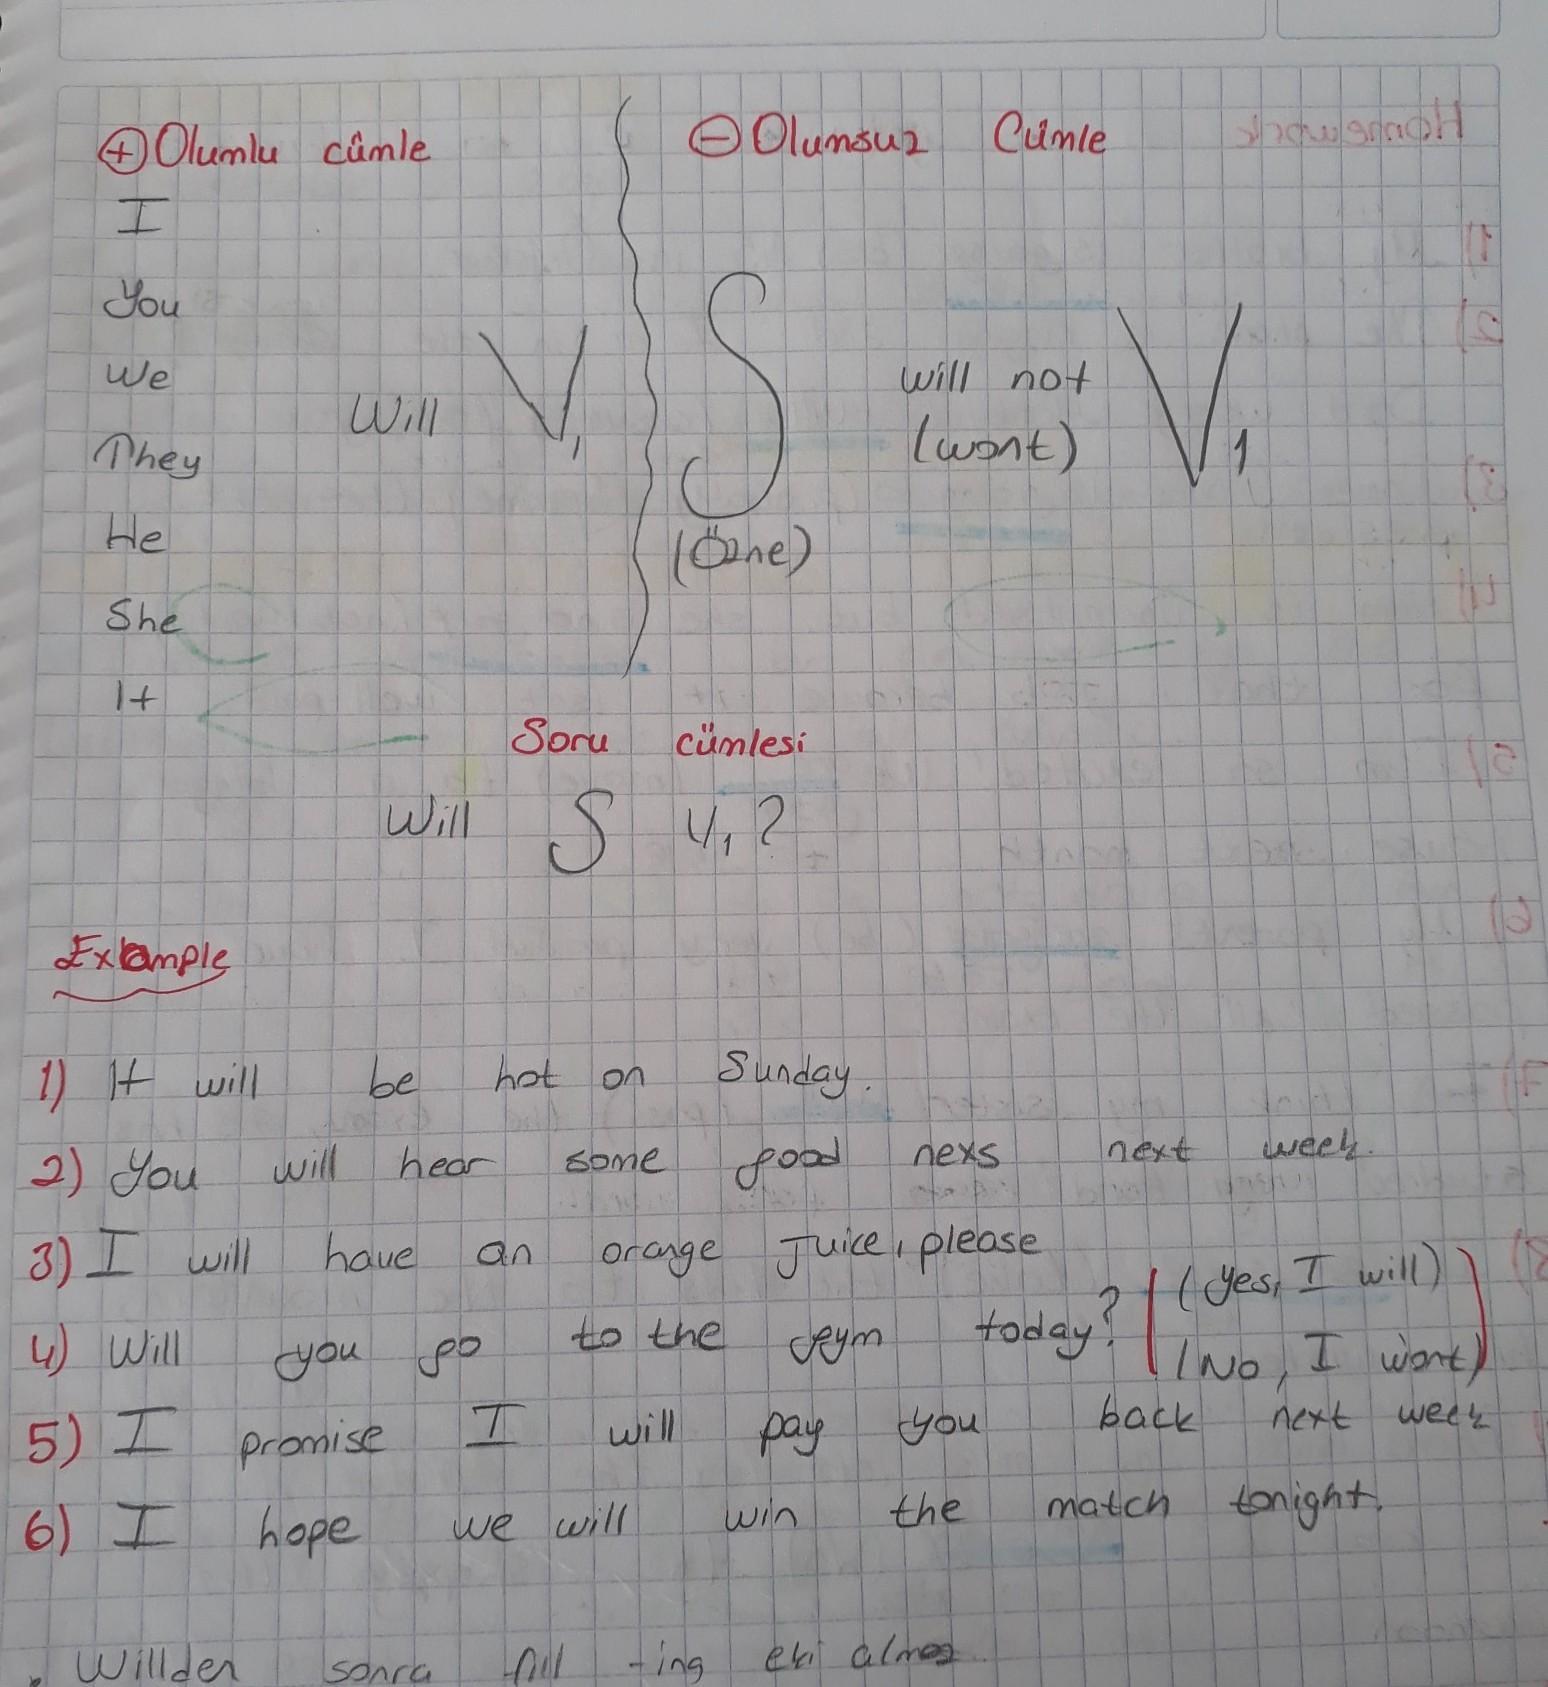 ⊕ Olumlu cümle
I
You
We
They
He
She
It
Will V1
⊖ Olumsuz Cümle
S
(Özne)
will not
(wont)
V1
Soru cümlesi
Will S V1?
Example
1) It will be hot on Sunday.
2) You will hear some good nexs next week.
3) I will have an orange Juice, please
4) Will you go to the gym today? (Yes, I will)
(No, I wont)
5) I promise I will pay you back next week
6) I hope we will win the match tonight.
. Willden sonra fiil -ing eki almaz